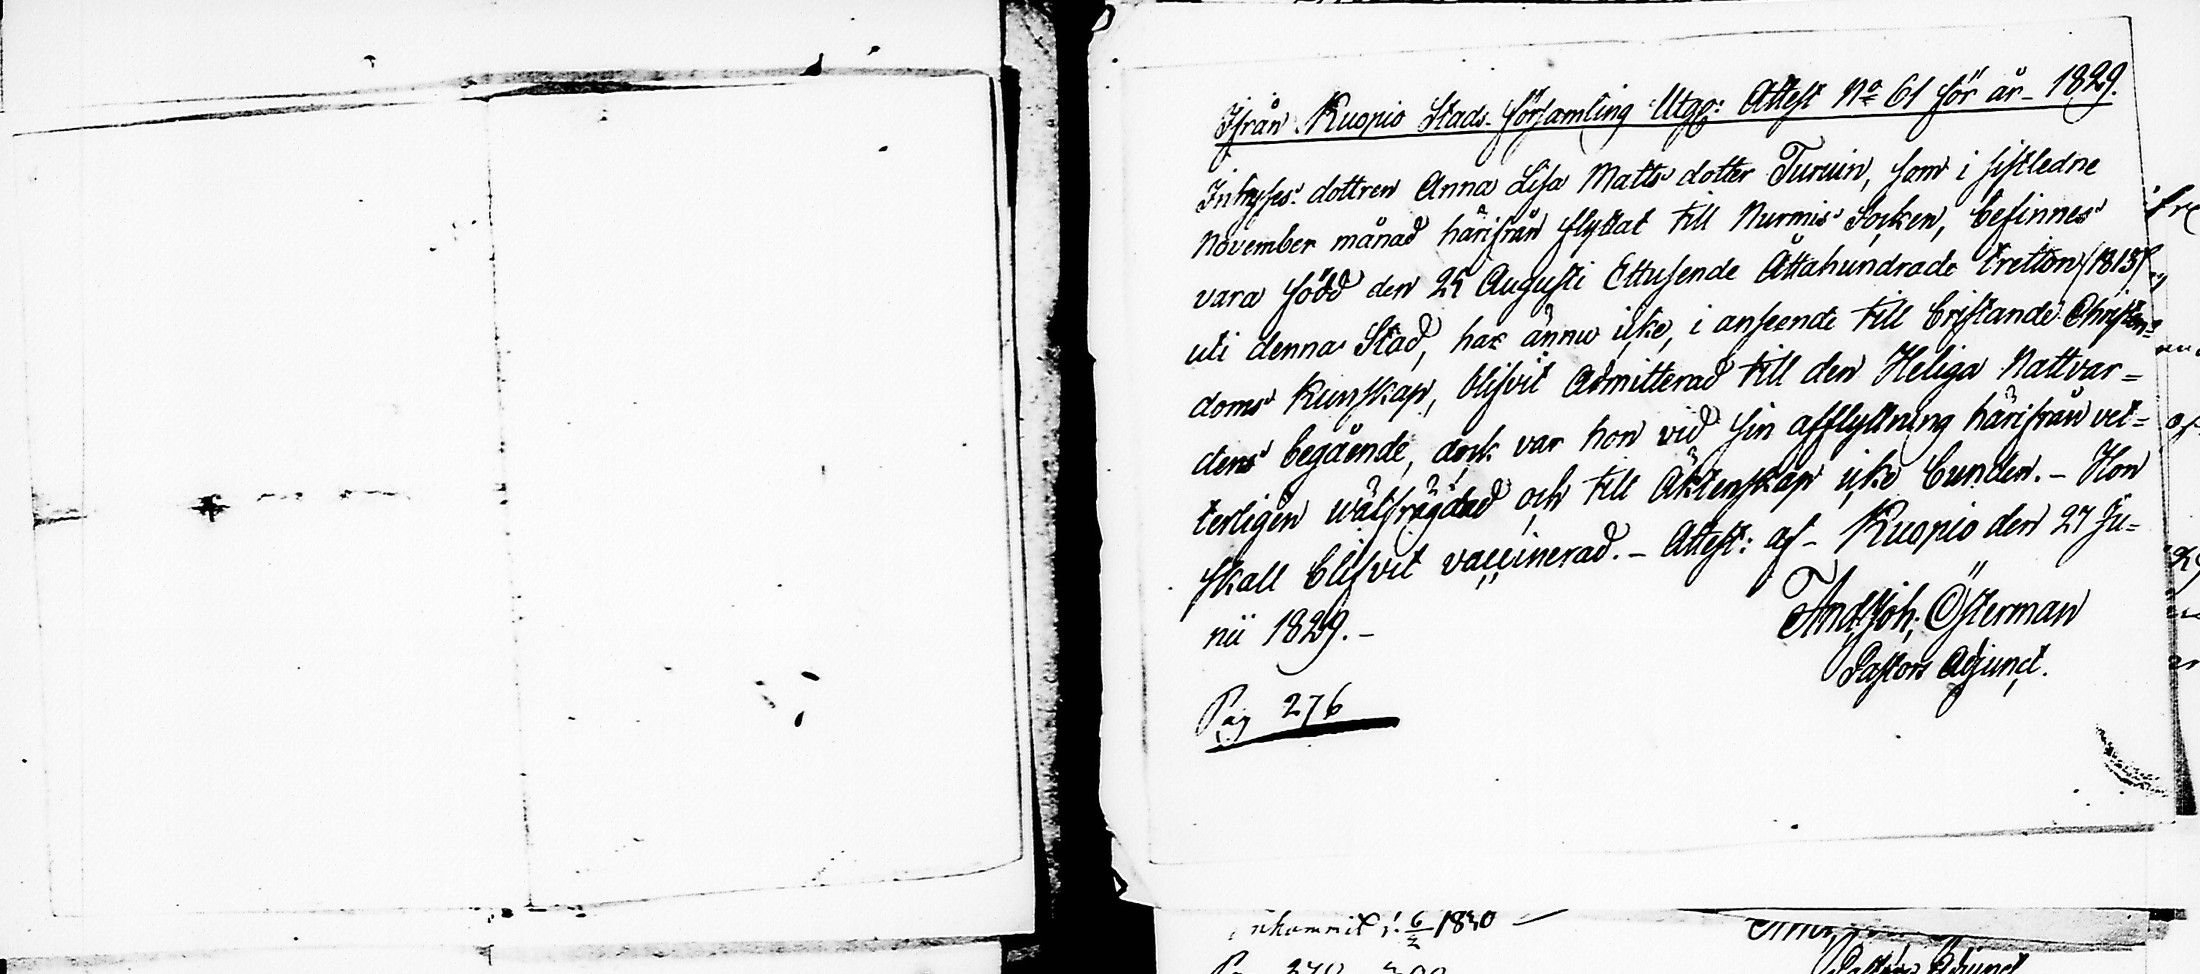 Ifrån Kuopio Stads-församling Utgp: Attest No 61 för år_ 1829.
Inhyses dottren Anna Lisa Matts dotter Turuin, som i sistledne
November månad härifrån flyttat till Nurmis Socken, befinnes
vara född den 24 Augusti Ettusende Åttahundrade tretton /1813/
uti denna Stad, har ännu icke, i anseende till bristande Christen=
doms kunskap, blifvit Admitterad till den Heliga Nattvar=
dens begående, dock var hon vid sin afflyttning härifrån vet=
terligen wälfrägdad och till Äktenskap icke bunden. – Hon
skall blifvit vaccinerad. – Attest: af – Kuopio den 27 Ju=
nii 1829. –
And: Joh: Österman
Pastors Adjunct.
Pag 276
inkommit 1830